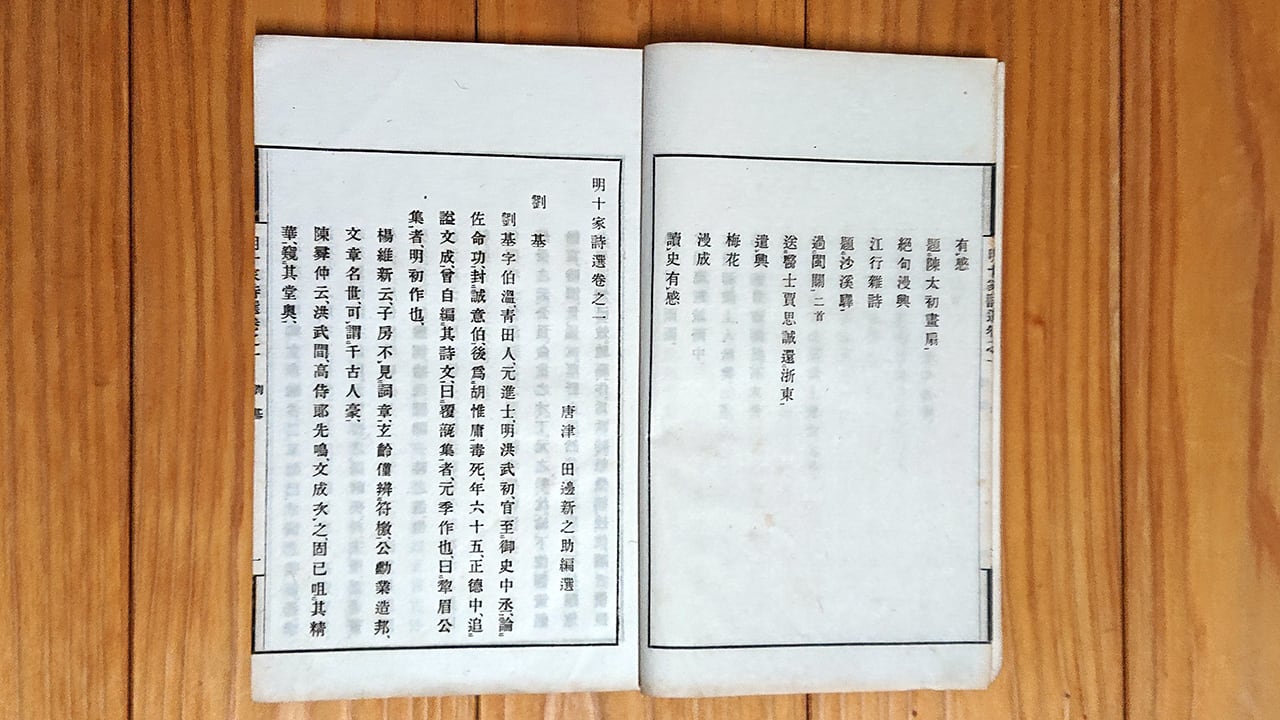 有感
題陳太初畫扇
絕句漫興
江行雜詩
題沙溪驛
過閩關 二首
送醫士賈思誠還浙東
遣興
梅花
漫成
讀史有感
明十家詩選卷之一
唐津 田邊新之助編選
劉基
劉基字伯溫、青田人、元進士、明洪武初、官至御史中丞、論
佐命功、封誠意伯、後爲胡惟庸毒死、年六十五、正德中、追
謚文成、曾自編其詩文、曰覆瓿集者、元季作也、曰犂眉公
集者、明初作也、
楊維新云、子房不見詞章、玄齡僅辨符檄、公勳業造邦、
文章名世、可謂千古人豪、
陳霽仲云、洪武間、高侍郎先鳴、文成次之、固已咀其精
華、窺其堂奧、
明十家詩選卷之一 劉基 一